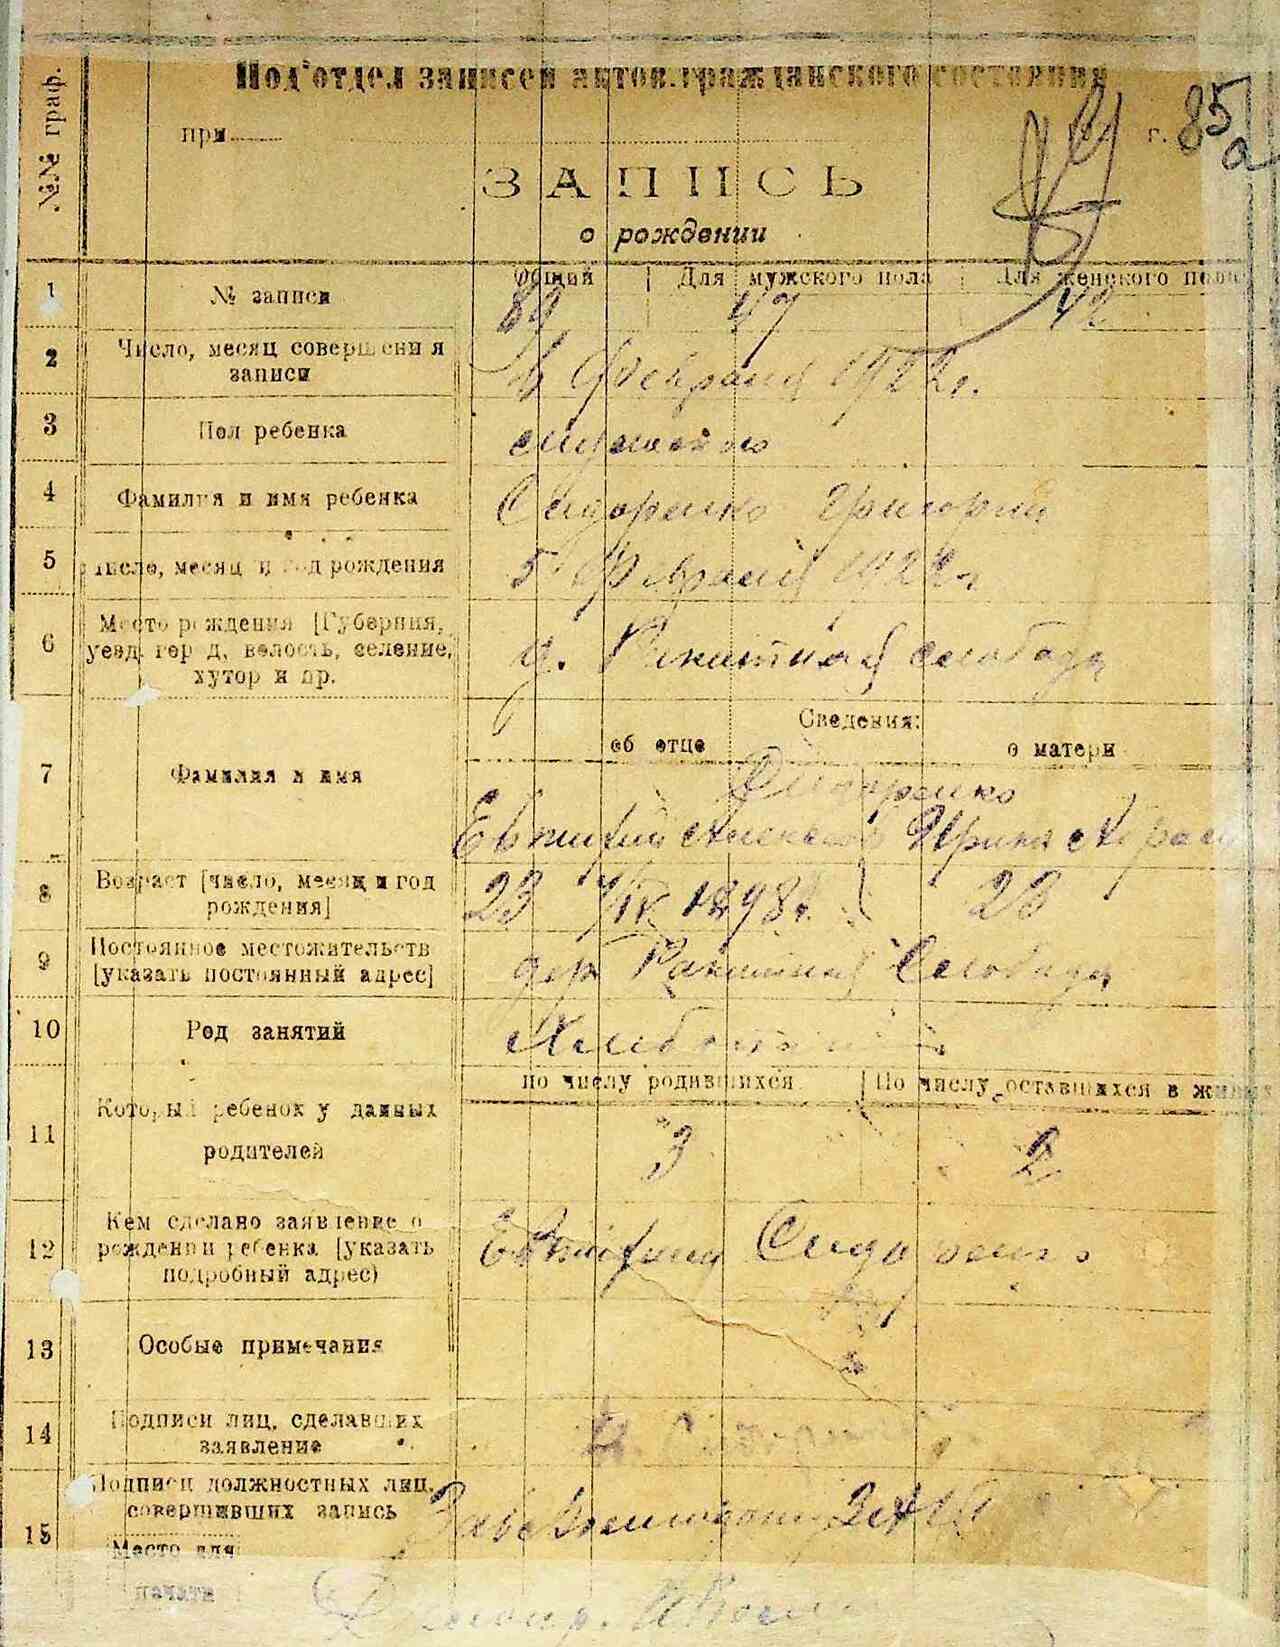 №№ граф.
Под'отдел записей актов гражданского состояния
при г. 85
а
ЗАПИСЬ
о рождении
1 № записи Общий Для мужского пола Для женского пола
89 47 42
2 Число, месяц совершения записи
6 Февраля 1922 г.
3 Пол ребенка мужского
4 Фамилия и имя ребенка Сидоренко Григорий
5 Число, месяц и год рождения 5 Февраля 1922 г.
6 Место рождения [Губерния,
уезд, город, волость, селение,
хутор и пр.
д. Ракитная Слобода
Сведения:
об отце о матери
7 Фамилия и имя Сидоренко
Евтифий Алексеев Ирина
8 Возраст [число, месяц и год
рождения]
23 1898 г. 23
9 Постоянное местожительств
[указать постоянный адрес]
дер Ракитная Слобода
10 Род занятий
по числу родившихся По числу оставшихся в живых
11 Который ребенок у данных
родителей
3 2
12 Кем сделано заявление о
рождении ребенка [указать
подробный адрес)
Евтифий Сидоренко
13 Особые примечания
14 Подписи лиц, сделавших
заявление
15 Подписи должностных лиц,
совершивших запись
Место для
печати